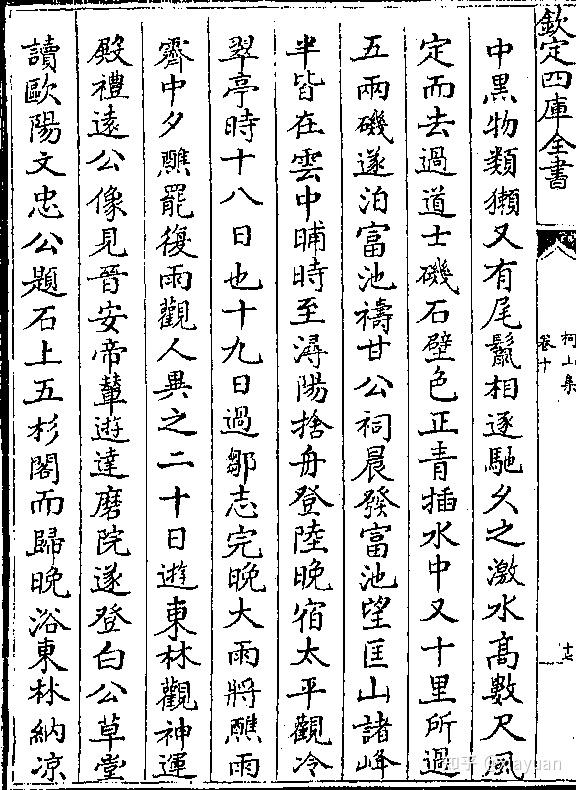 欽定四庫全書
柯山集
卷十
中黒物類獺又有尾鬛相逐馳久之激水髙數尺風
定而去過道士磯石壁色正青插水中又十里所過
五兩磯遂泊富池禱甘公祠晨發富池望匡山諸峰
半皆在雲中晡時至潯陽捨舟登陸晚宿太平觀冷
翠亭時十八日也十九日過鄒志完晚大雨將醮雨
霽中夕醮罷復雨觀人異之二十日遊東林觀神運
殿禮逺公像見晉安帝輦遊達磨院遂登白公草堂
讀歐陽文忠公題石上五杉閣而歸晚浴東林納凉